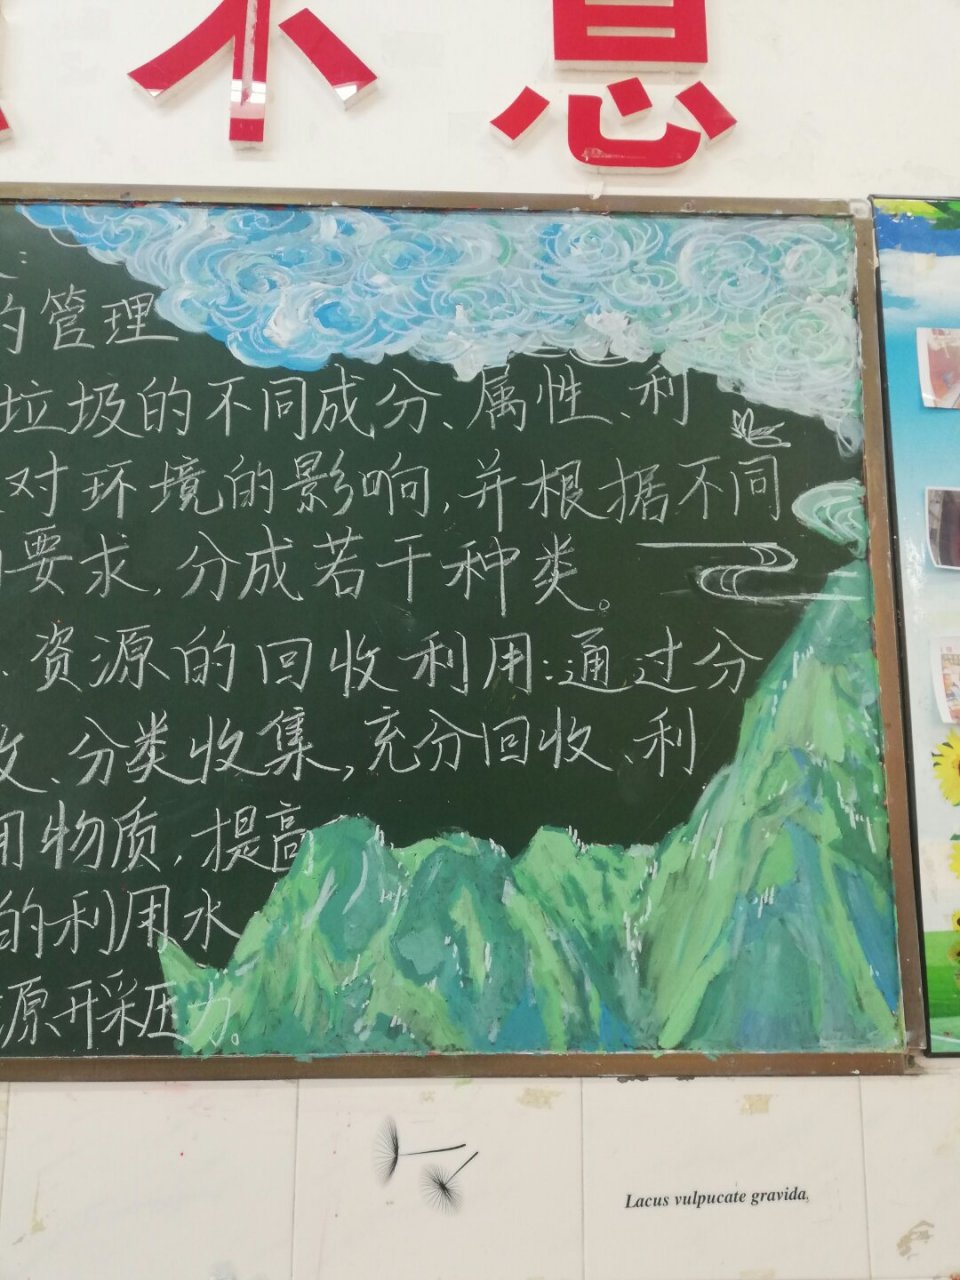 不息
的管理
垃圾的不同成分、属性、利
对环境的影响,并根据不同
要求,分成若干种类。
资源的回收利用:通过分
、分类收集,充分回收、利
用物质,提高
的利用水
源开采压力。
Lacus vulpucate gravida,